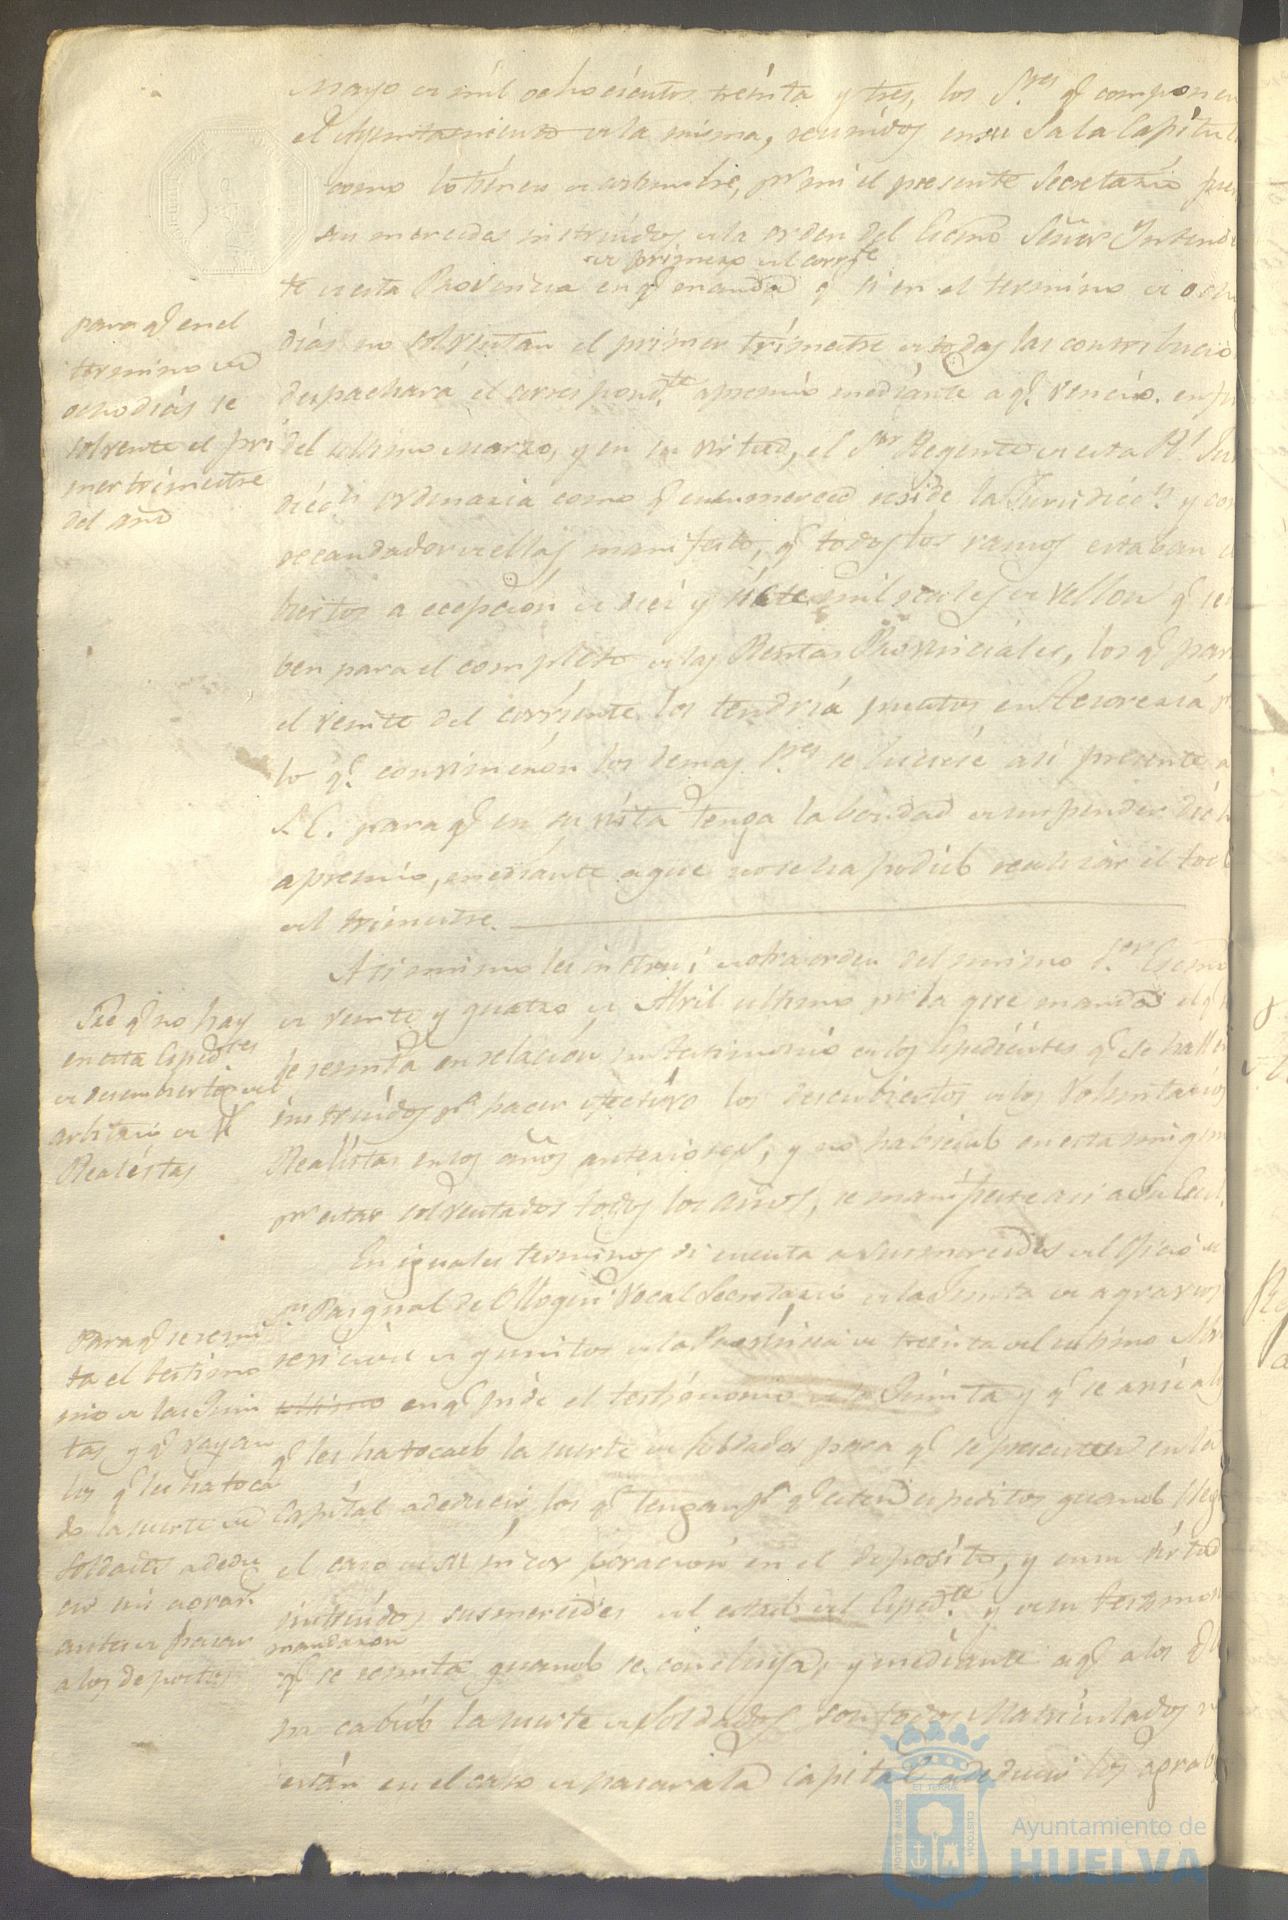 Mayo de mil ochocientos treinta y tres, los S.res q.e componen
el Ayuntamiento de la misma, reunidos en su Sala Capitul
como lo tienen de costumbre, p.r mi el presente Secretario fue
sus mercedes instruidos de la orden del Excmo Señor Intend
de primero del corr.te
te de esta Provincia en q.e manda q.e si en el termino de ocho
dias no solventan el primer trimestre de todas las contribucio
despachará el correspond.te apremio mediante a q.e vencio en fin
del ultimo Marzo, y en su virtud, el S.or Regente de esta R.l Juris
dicc.n ordinaria como q.e en su merced reside la Jurisdicc.n y
recaudador de ellas manifesto, q.e todos los ramos estaban
biertos a ecepcion de diez y siete mil reales de vellon q.e se
ben para el completo de las Rentas Provinciales, los q.e para
el veinte del corriente los tendria puestos en Tesoreria
lo q.e convinieron los demas S.res se hiciese asi presente a
S.E. para q.e en su vista tenga la bondad de suspender dich
apremio, mediante a que no se ha podido realizar el tod
del trimestre.
Asi mismo les instrui de otra orden del mismo S.or Excmo
de veinte y quatro de Abril ultimo p.r la que manda el q.e
se remita en relacion testimonio de los Espedientes q.e se hallen
instruidos p.a hacer efectivo los descubiertos de los Voluntarios
Realistas en los años anteriores, y no habiendo en esta ningun
p.r estar solventados todos los años, se manifieste asi a Su Exc.
En iguales terminos di cuenta a sus mercedes del oficio de
S.r Pasqual de Vocal Secretario de la Junta de agravios
de quintos de la Provincia de treinta del ultimo Abri
ultimo en q.e pide el testimonio de la Quinta y q.e se
q.e les ha tocado la suerte de soldados para q.e se presenten en la
Capital a deducir los q.e tengan p.a q.e esten espeditos quando lleg
el caso de su incorporacion en el deposito, y en su virtud
instruidos sus mercedes del estado del Esped.te y de su testimon
mandaron
q.e se remita quando se concluya; y mediante a q.e a los q.e
ha cabido la suerte de soldados son todos Matriculados
están en el caso de pasar a la Capital a deducir los agrab
para q.e en el
termino de
ocho dias se
solvente el pri
mer trimestre
del año
Sre q.e no hay
en esta Esped.tes
de descubierto del
arbitrio de V.
Realistas
Para q.e se remi
ta el testimo
nio de las Quin
tas y q.e vayan
los q.e les ha toca
do la suerte de
soldados a dedu
cir sus agrav.
antes de pasar
a los depositos
Ayuntamiento de
HUELVA